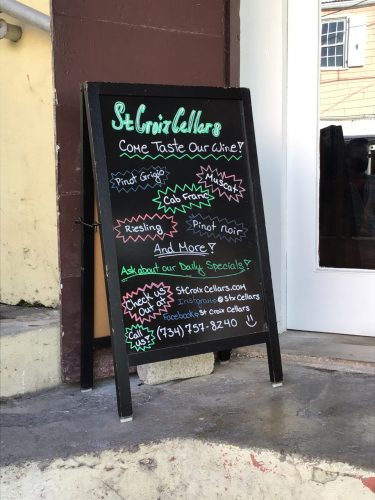 St Croix Cellars
Come Taste Our Wine!
Pinot Grigio
Muscat
Cab Franc
Riesling
Pinot Noir
And More!
Ask about our Daily Specials!
Check us Out at:
StCroixCellars.com
Instagram@ Stx Cellars
Facebook@ St Croix Cellars
Call us!
(734) 757-8240